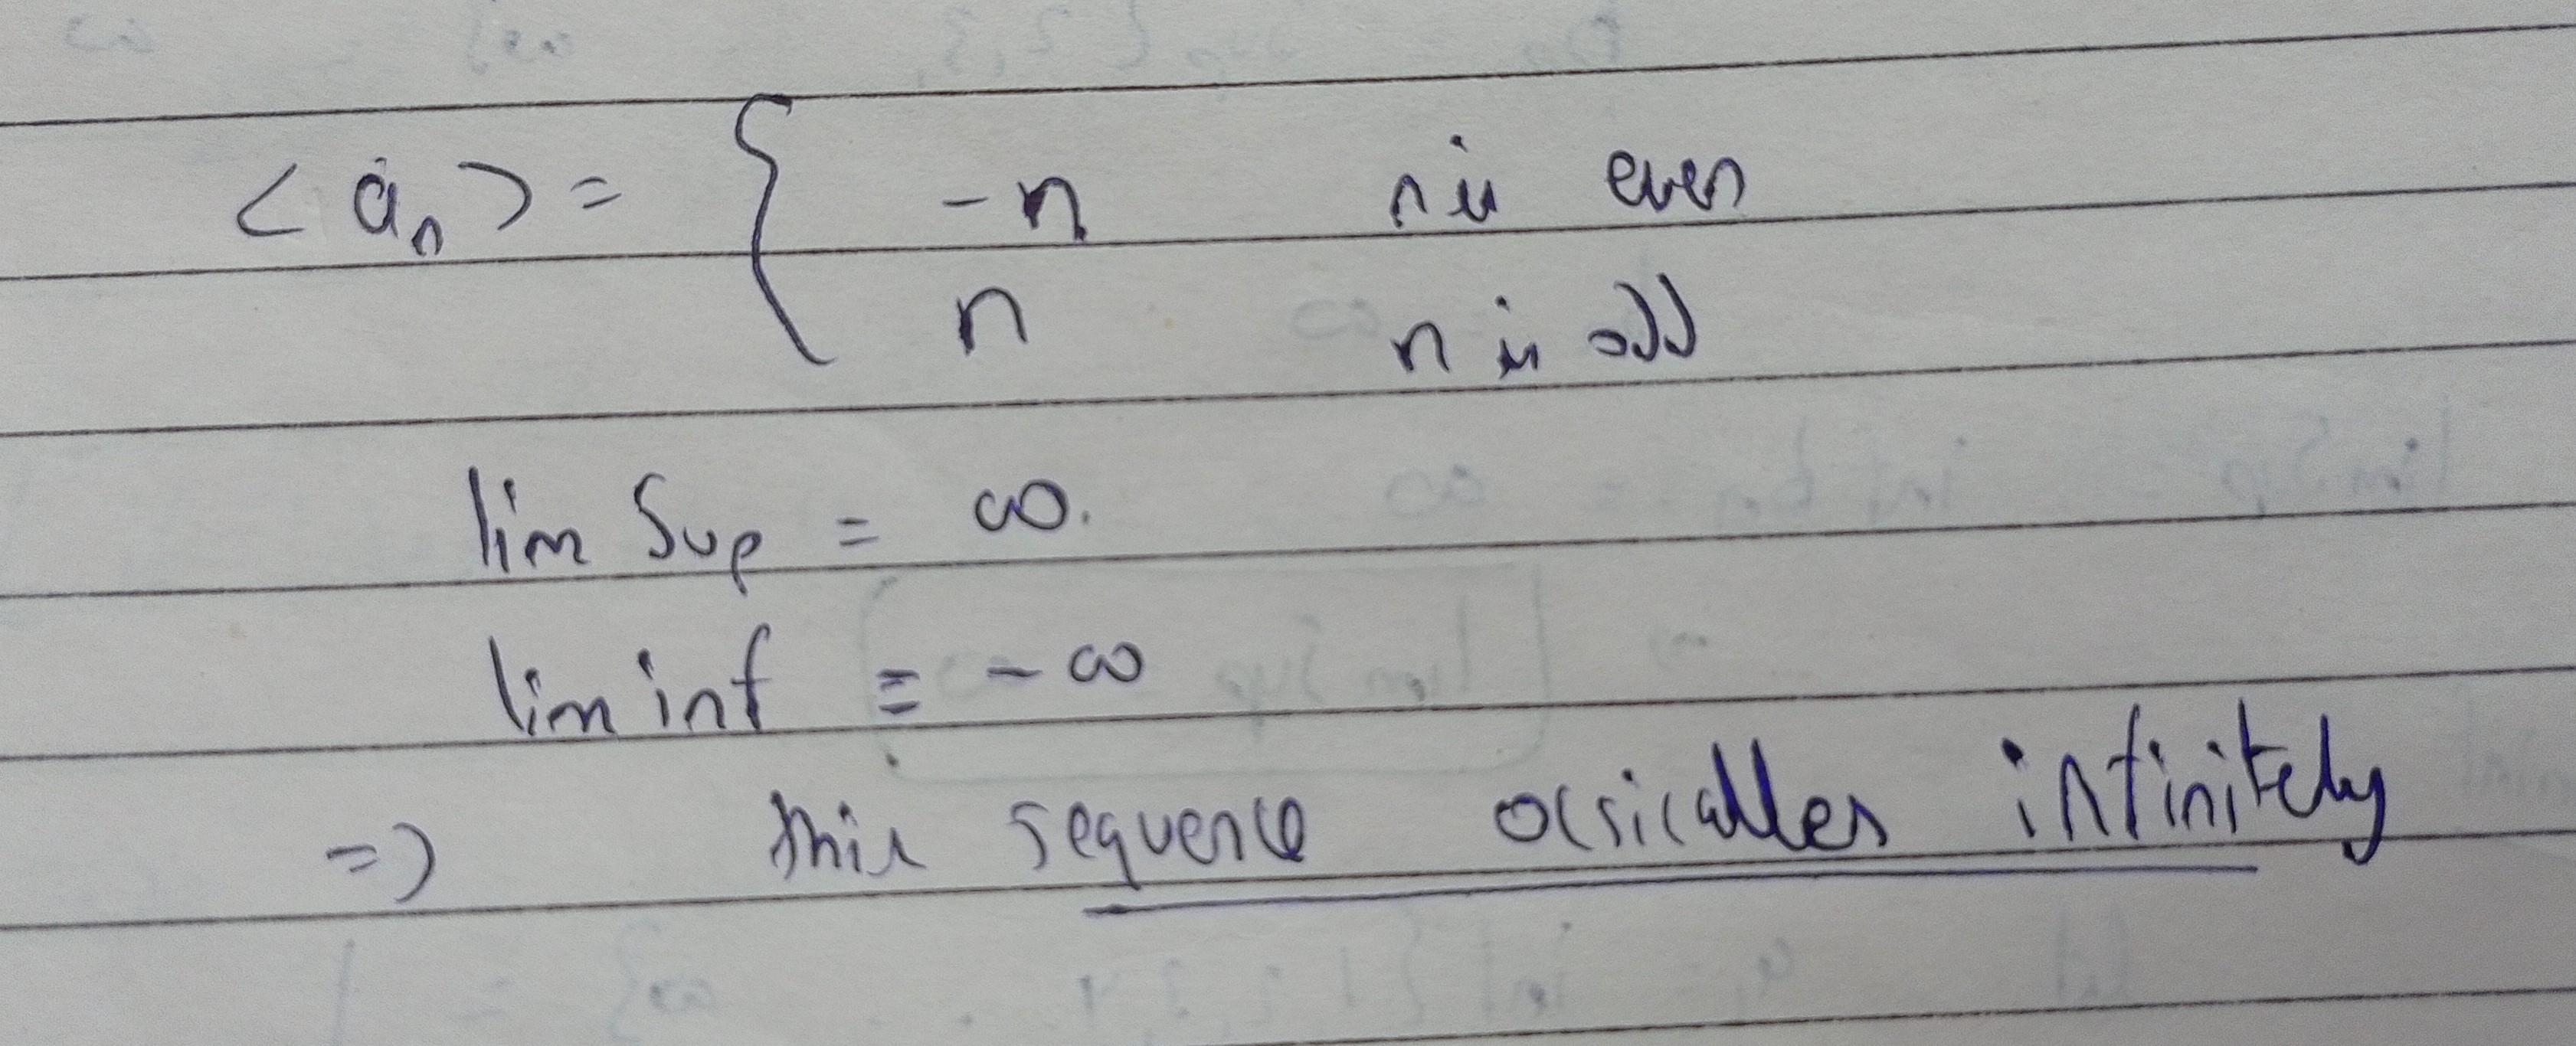 <an> = { -n n is even
n n is odd
lim Sup = ∞.
lim inf = -∞
=> this sequence ocsicalles infinitely